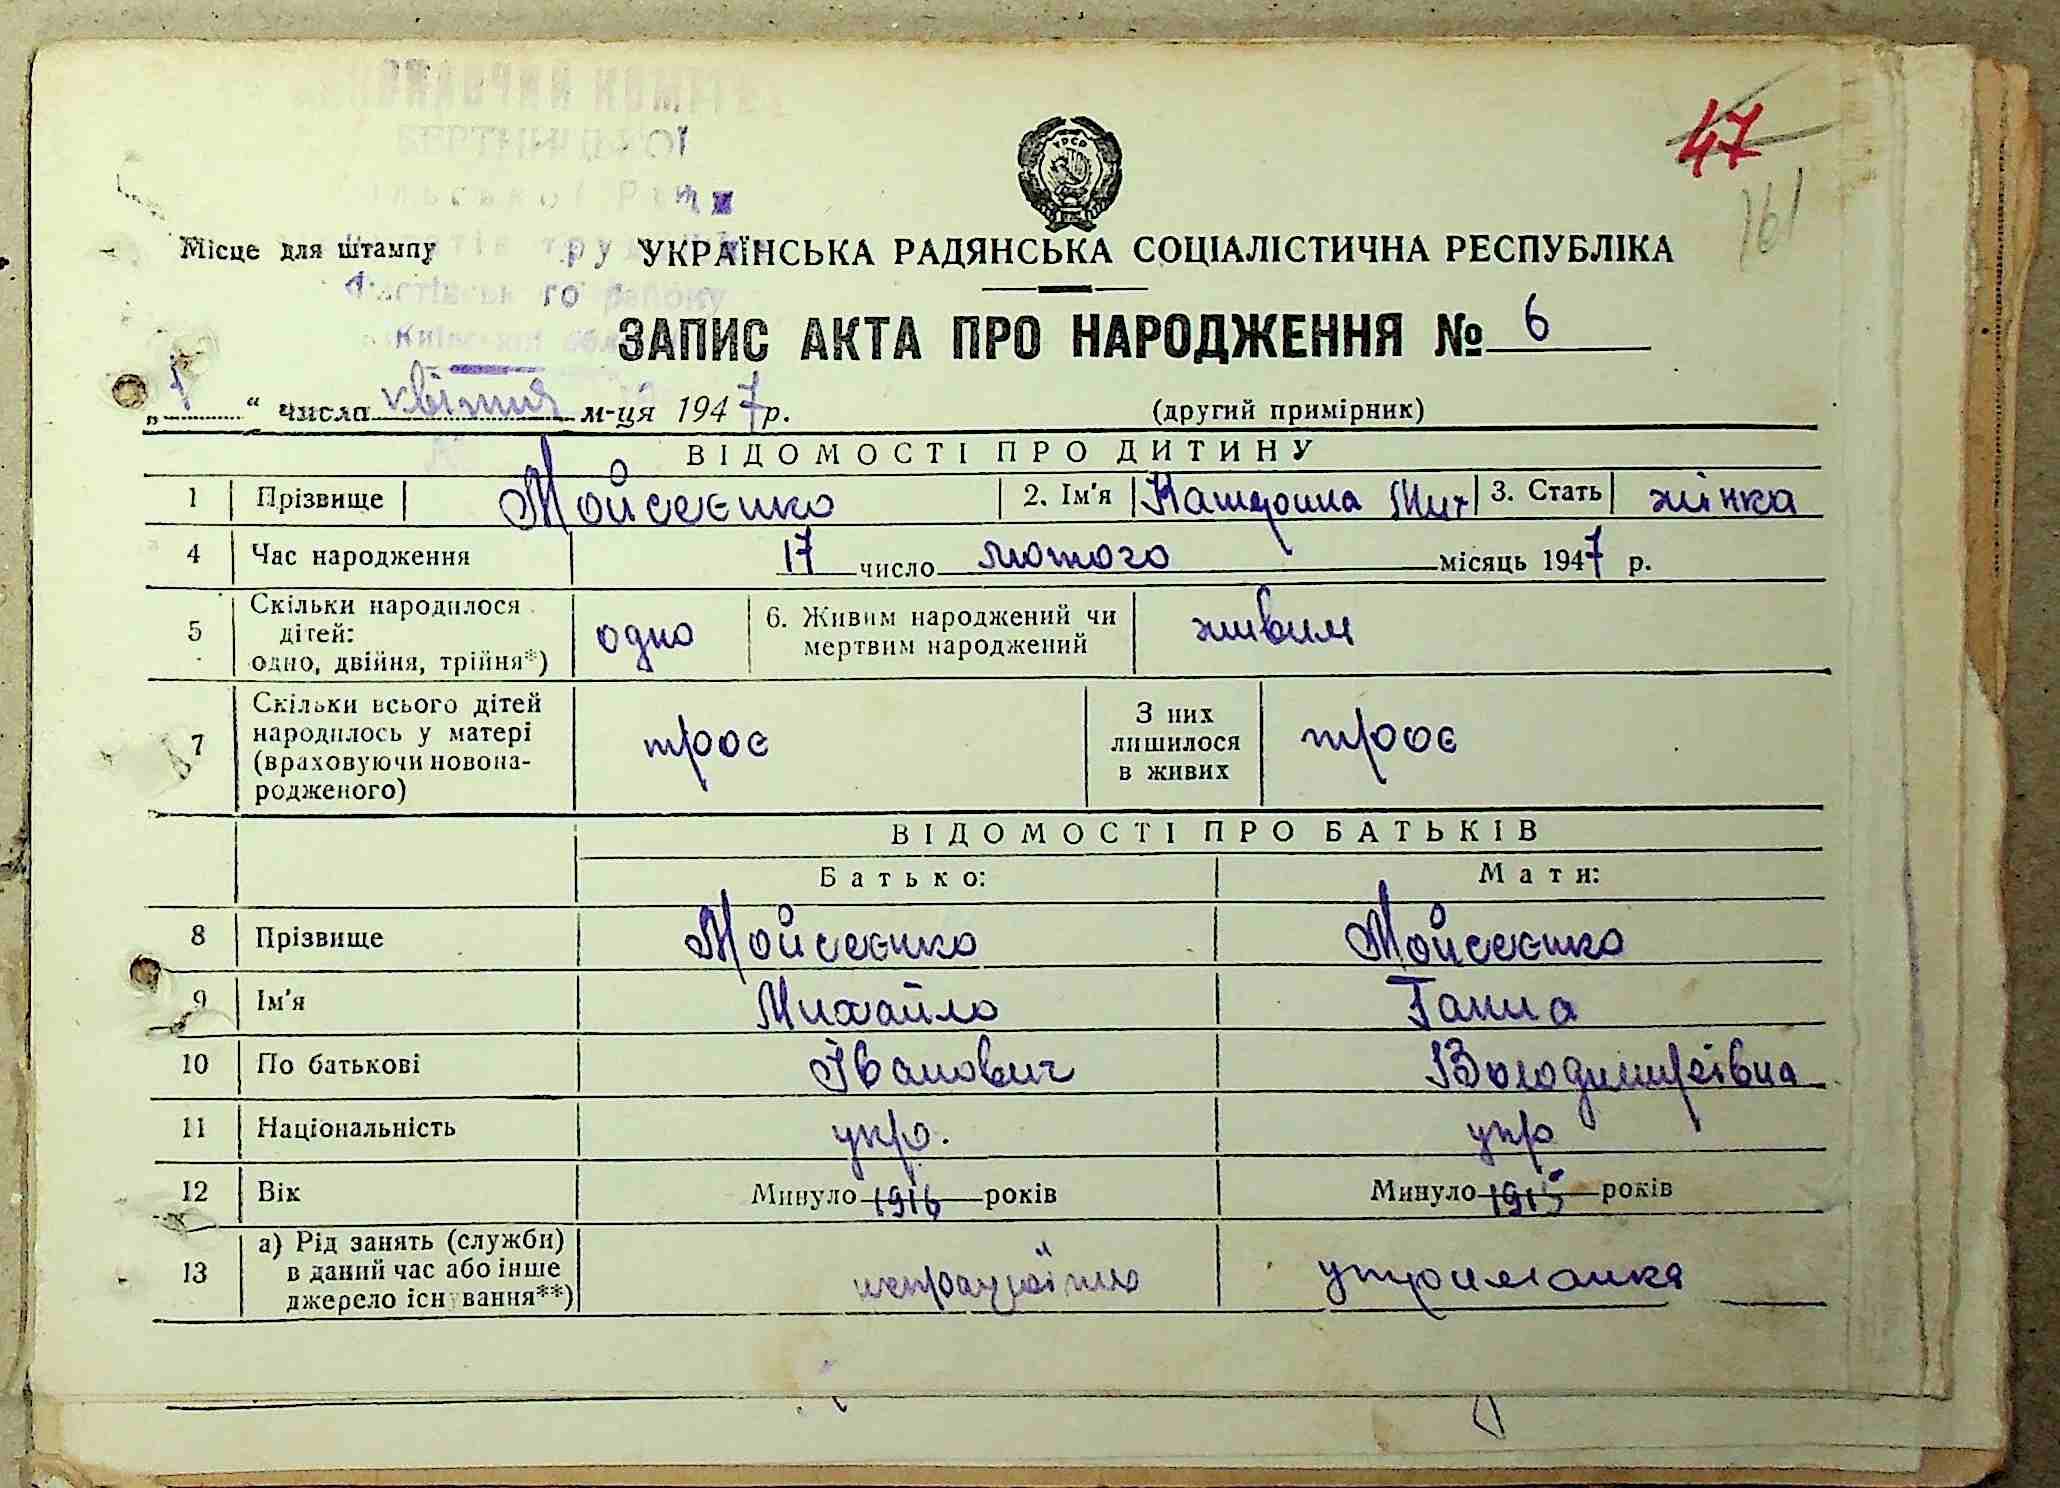 47
161
УРСР
Місце для штампу УКРАЇНСЬКА РАДЯНСЬКА СОЦІАЛІСТИЧНА РЕСПУБЛІКА
ЗАПИС АКТА ПРО НАРОДЖЕННЯ № 6
„1“ числа квітня м-ця 1947 р. (другий примірник)
ВІДОМОСТІ ПРО ДИТИНУ
1 Прізвище Мойсеєнко 2. Ім'я Катерина Мих 3. Стать жінка
4 Час народження 17 число лютого місяць 1947 р.
5 Скільки народилося дітей: одно, двійня, трійня*) одно 6. Живим народжений чи мертвим народжений живим
7 Скільки всього дітей народилось у матері (враховуючи новонародженого) троє З них лишилося в живих троє
ВІДОМОСТІ ПРО БАТЬКІВ
Батько: Мати:
8 Прізвище Мойсеєнко Мойсеєнко
9 Ім'я Михайло Ганна
10 По батькові Іванович Володимирівна
11 Національність укр. укр
12 Вік Минуло 1916 років Минуло 1915 років
13 а) Рід занять (служби) в даний час або інше джерело існування**) утриманка